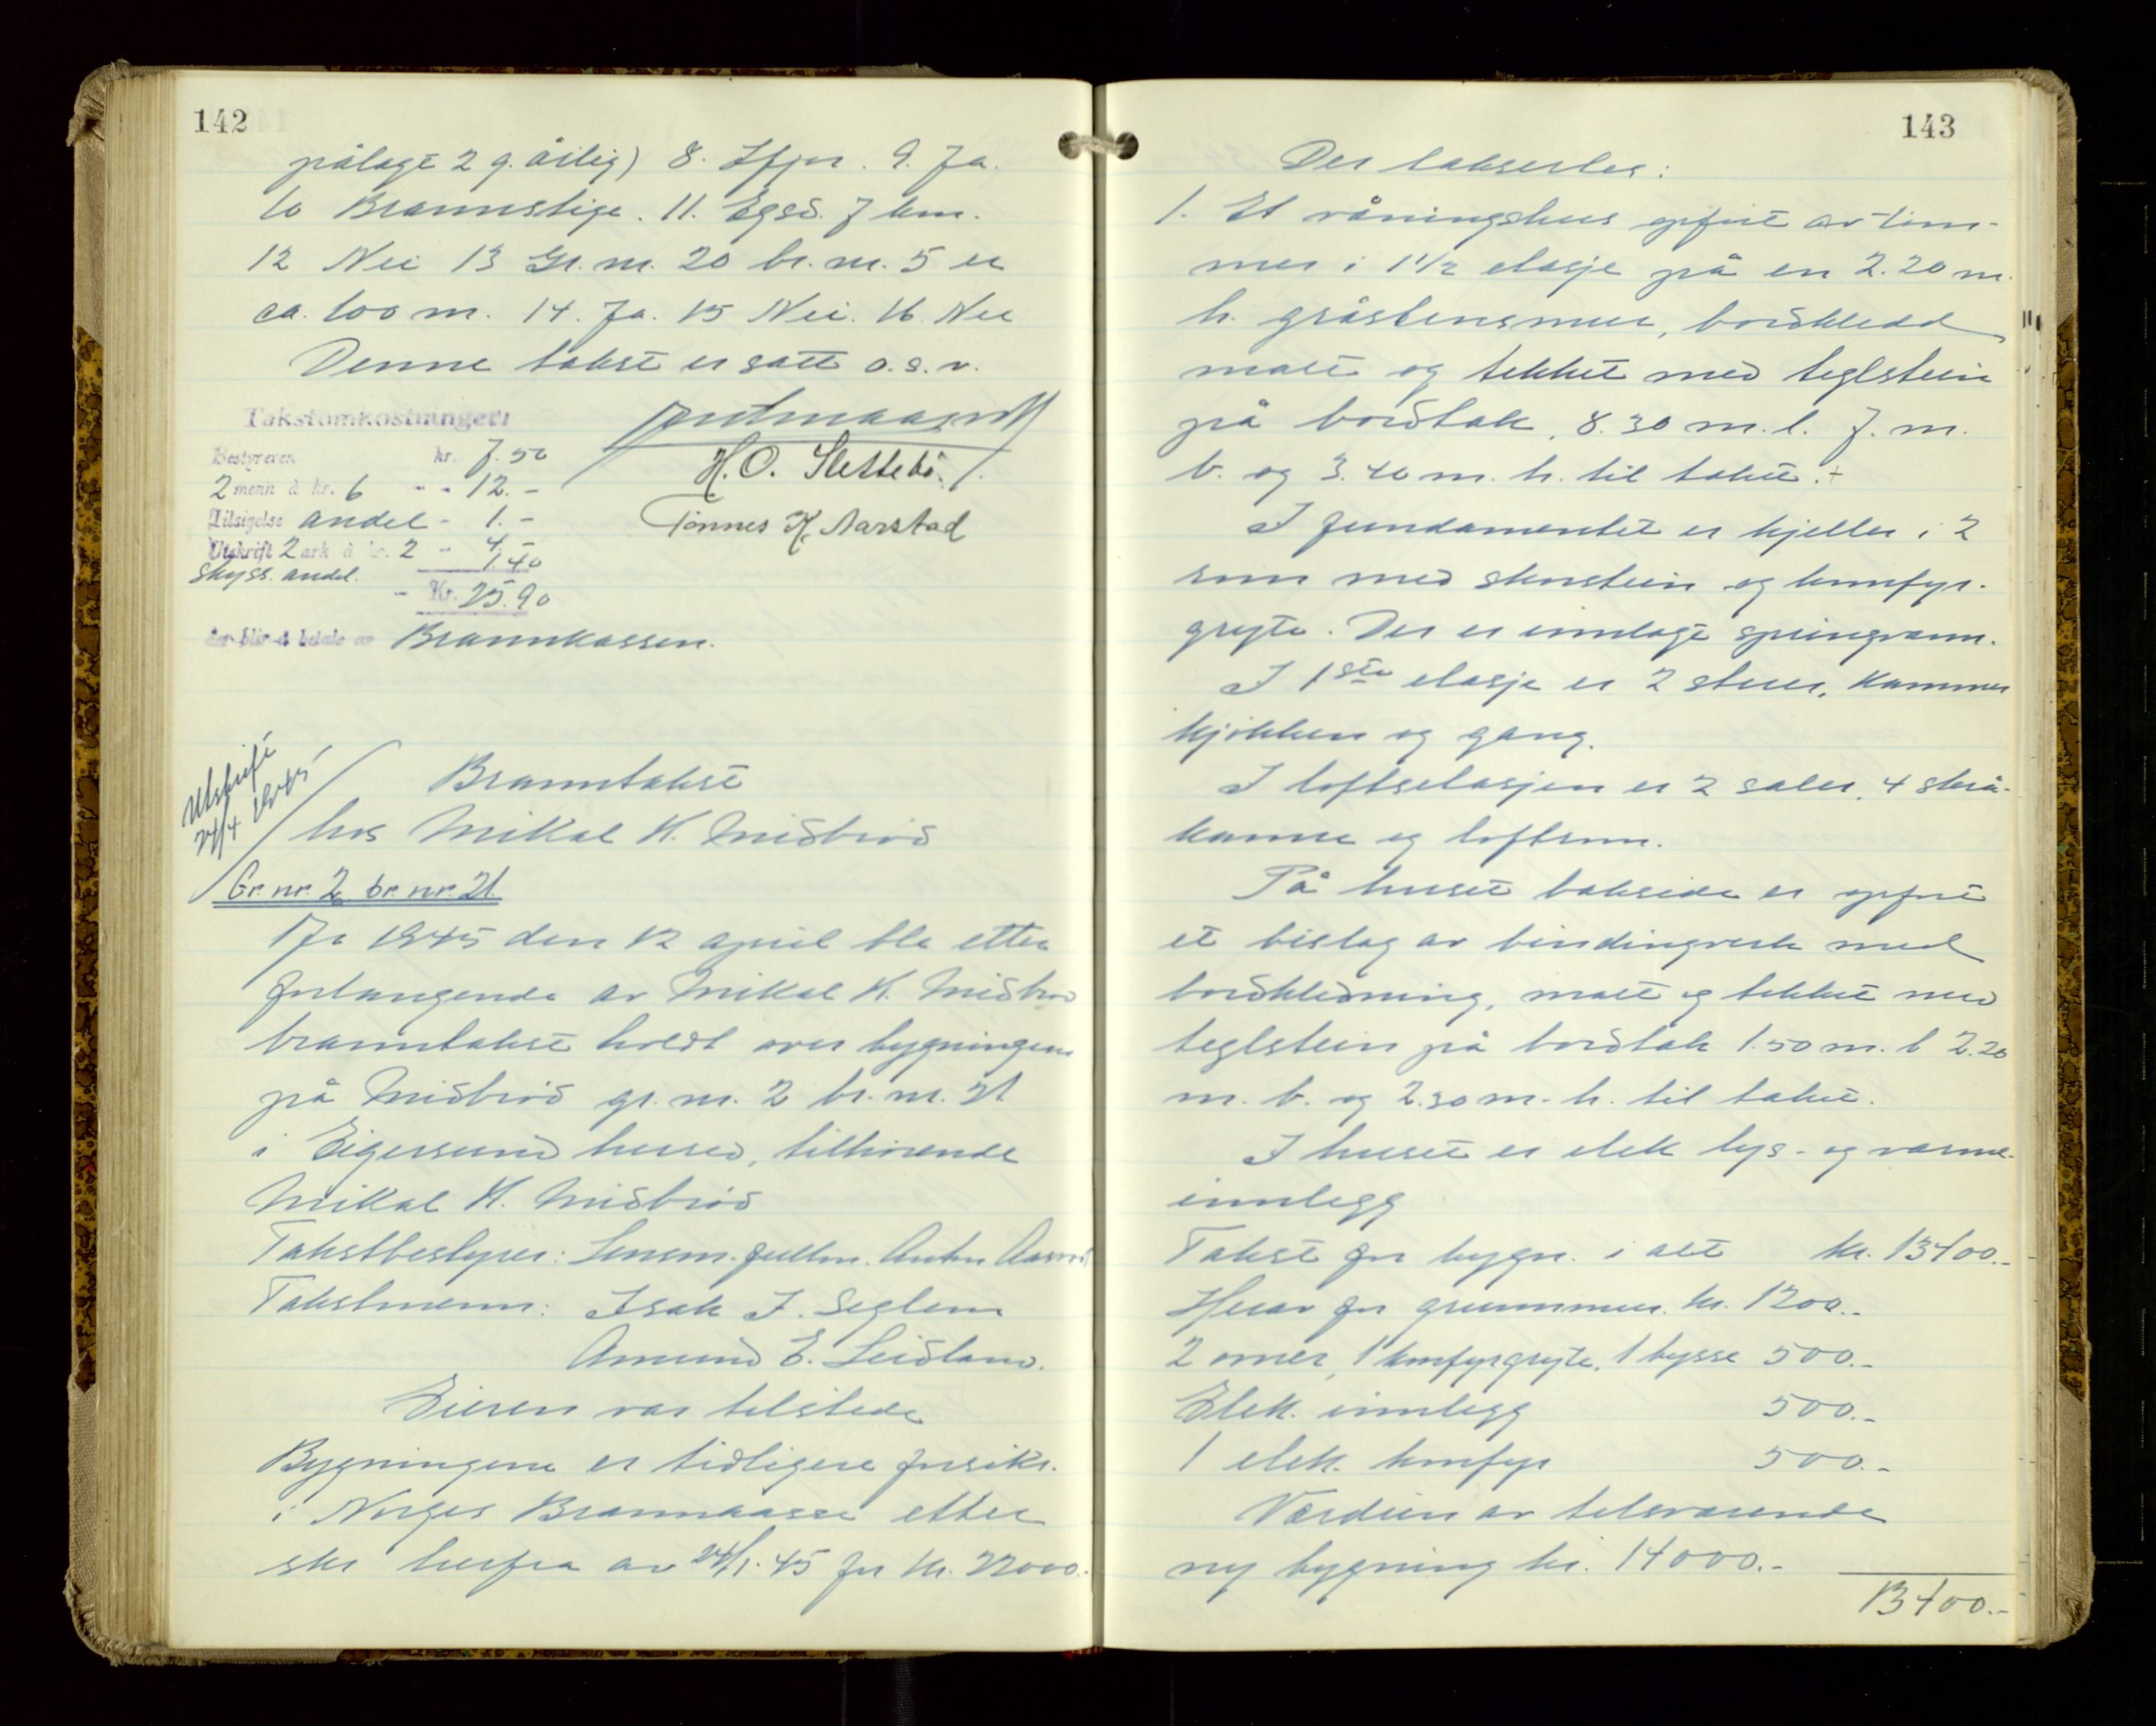 142
pålagt 2 g. årlig) 8. Ifjor. 9. Ja.
10 Brannstige. 11. Egsd. 7 km.
12 Nei 13 Gr. nr. 20 br. nr. 5 er
ca. 100 m. 14. Ja. 15 Nei. 16. Nei
Denne takst er satt o.s.v.
Takstomkostninger:
Bestyreren kr. 7.50
2 menn à kr. 6 - - 12.-
Tilsigelse andel - 1.-
Utskrift 2 ark à kr. 2 - 4.-
Skyss. andel. 1.40
- Kr. 25.90
der blir å betale av Brannkassen.
H. O. Slettebø.
Tønnes K. Aarstad
Utskrift
24/4 1945
Branntakst
hos Mikal K. Midbrød
Gr. nr. 2 br. nr. 21.
År 1945 den 12 april ble etter
forlangende av Mikal K. Midbrød
branntakst holdt over bygningene
på Midbrød gr. nr. 2 br. nr. 21
i Eigersund herred, tilhørende
Mikal K. Midbrød
Takstbestyrer: Lensm. fullm. Anton Aasmod
Takstmenn: Isak I. Seglem
Amund E. Leidland.
Eieren var tilstede
Bygningene er tidligere forsikr.
i Norges Brannkasse etter
skr herfra av 24/1.45 for kr. 22000.-
143
Der taksertes:
1. Et våningshus opført av tøm-
mer i 1 1/2 etasje på en 2.20 m.
h. gråstensmur, bordkledd
malt og tekket med teglstein
på bordtak. 8.30 m. l. 7. m.
b. og 3.40 m. h. til taket. +
I fundamentet er kjeller i 2
rom med skorstein og komfyr-
gryte. Der er innlagt springvann.
I 1ste etasje er 2 stuer, kammer
kjøkken og gang.
I loftsetasjen er 2 saler, 4 skrå-
kamre og loftsrom.
På huset bakside er opført
et bislag av bindingverk med
bordkledning, malt og tekket med
teglstein på bordtak 1.50 m. l 2.20
m. b. og 2.30 m. h. til taket.
I huset er elek lys- og varme-
innlegg
Takst for bygn. i alt kr. 13400.-
Herav for grunnmur. kr. 1200.-
2 ovner, 1 komfyrgryte, 1 bysse 500.-
Elek. innlegg 500.-
1 elek. komfyr 500.-
Verdien av tilsvarende
ny bygning kr. 14000.-
13400.-